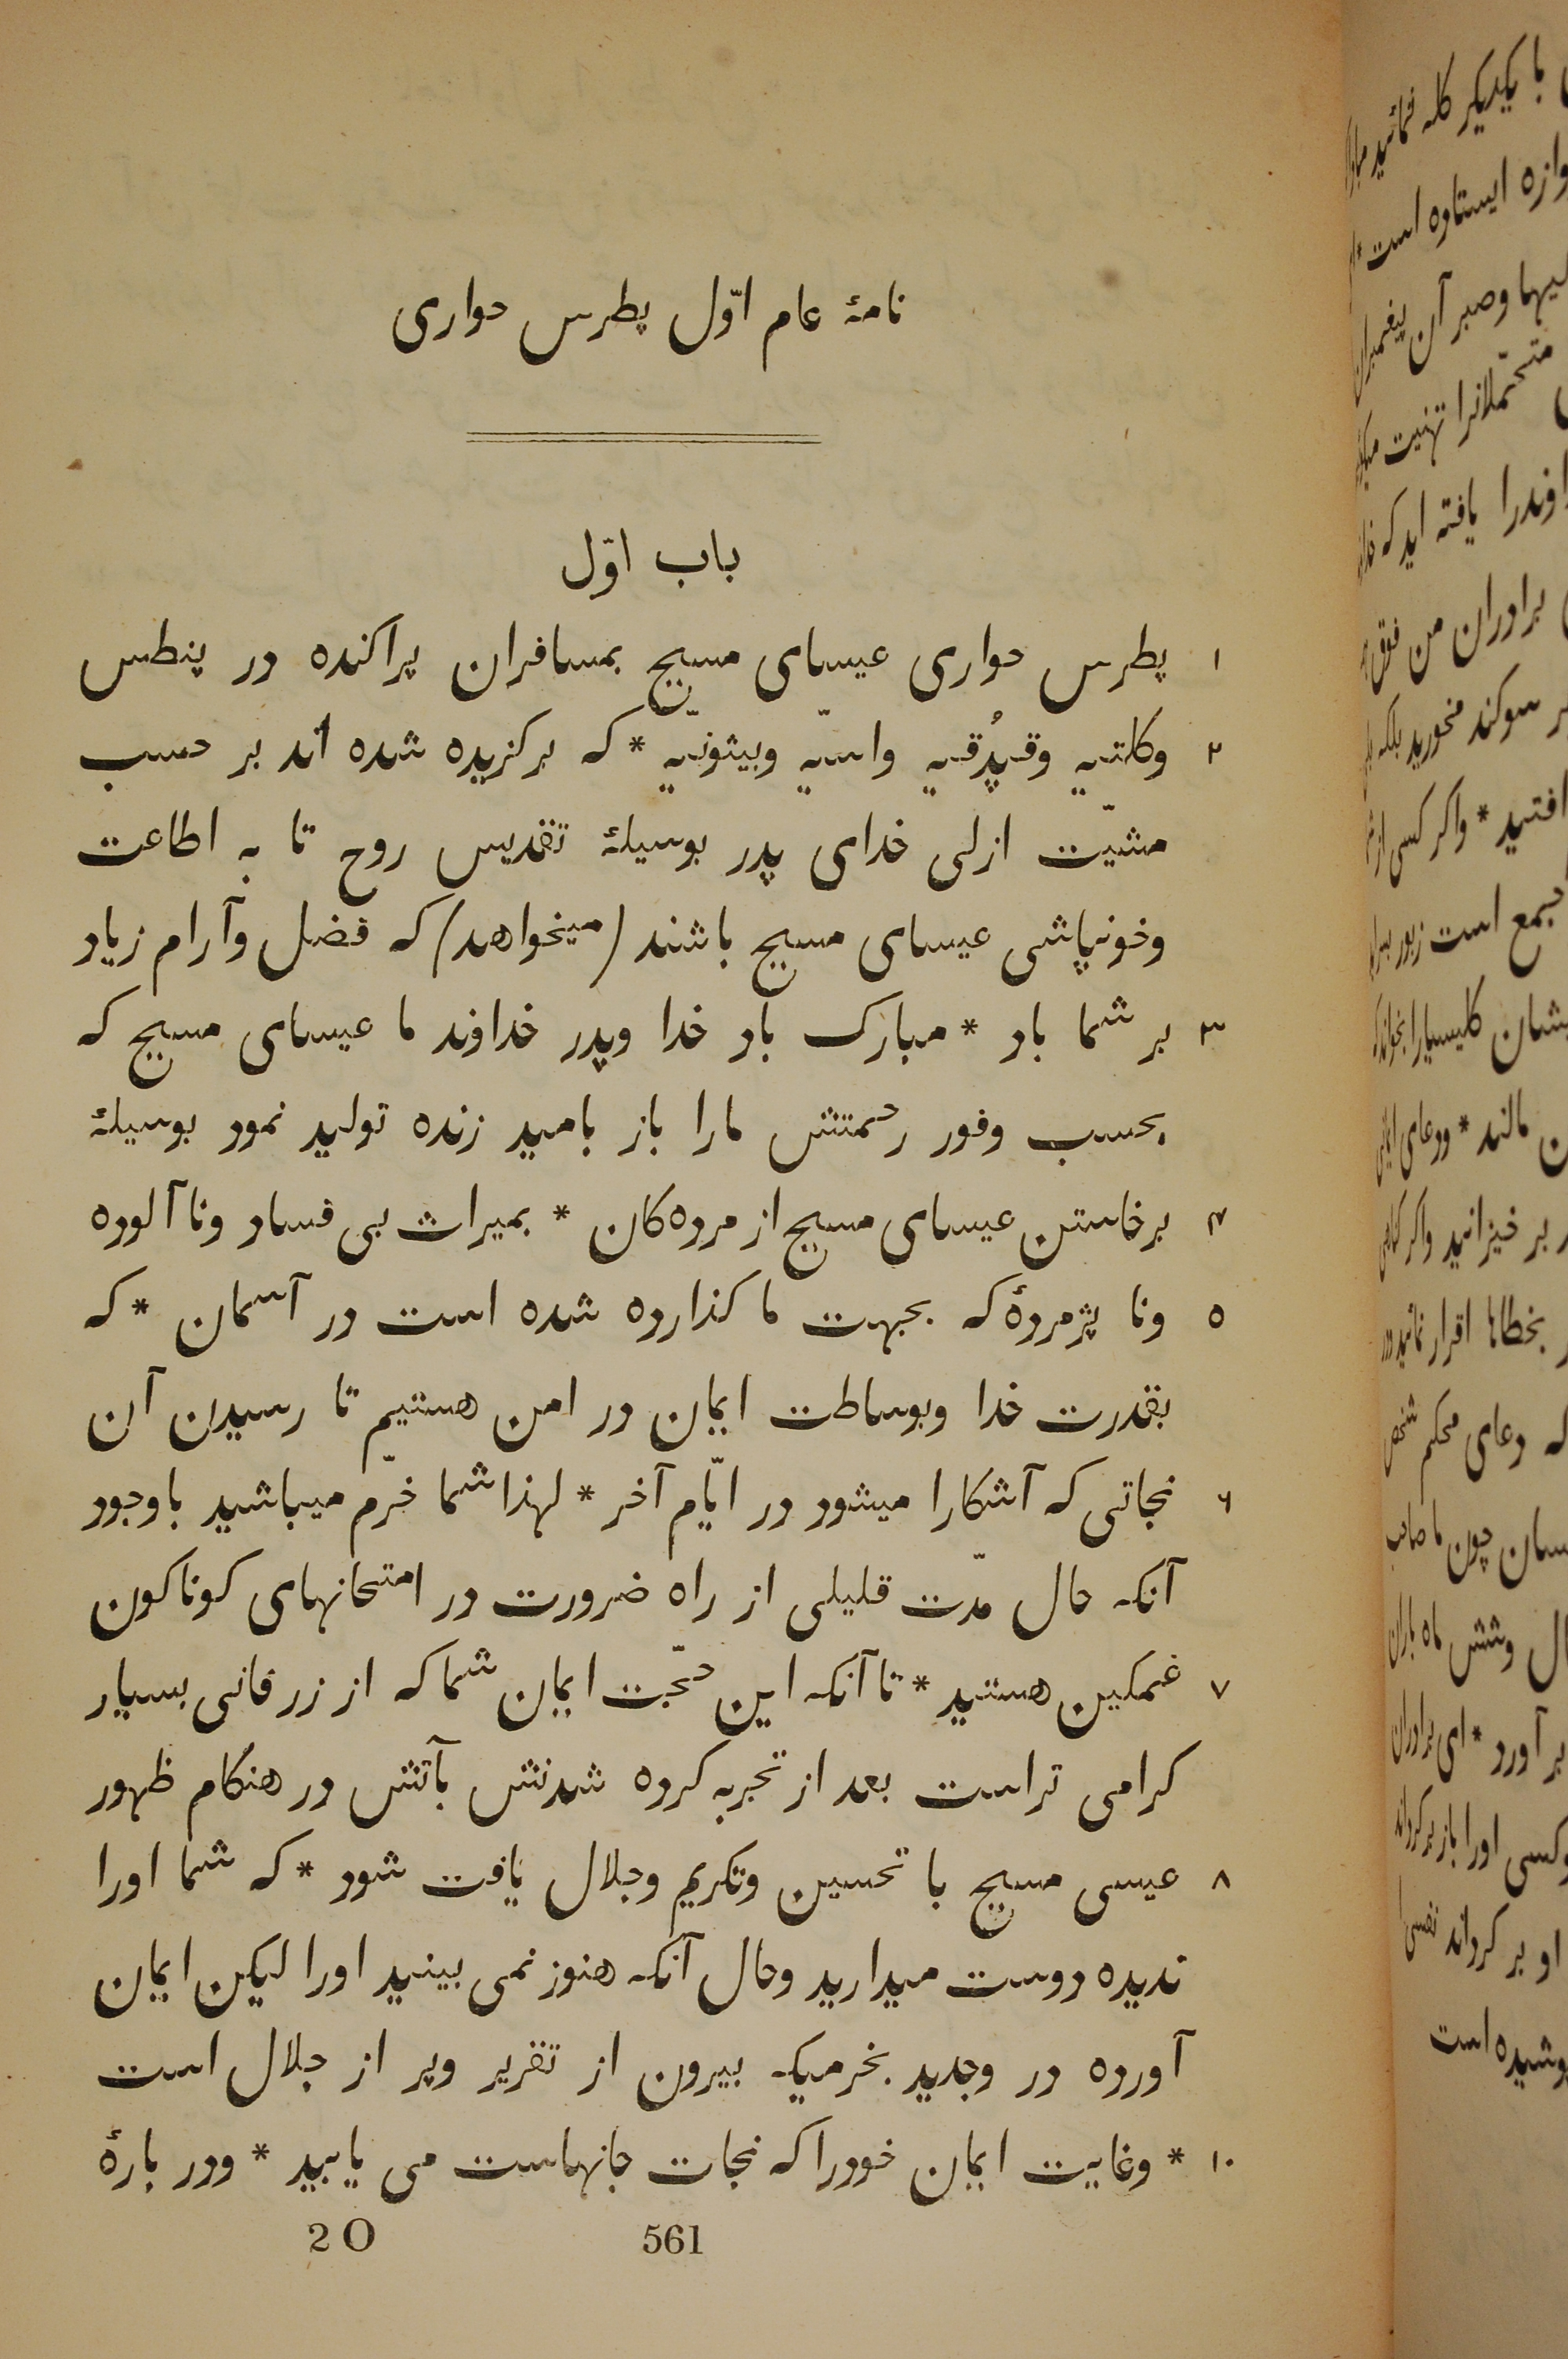 نامهٔ عام اوّل پطرس حواری
باب اوّل
۱ پطرس حواری عیسای مسیح بمسافران پراکنده در پنطس
۲ وکلتیه وقپدُقیه واسّیه وبیثونّیه * که برکزیده شده اند بر حسب
مشیّت ازلی خدای پدر بوسیلهٔ تقدیس روح تا به اطاعت
وخونپاشی عیسای مسیح باشند (میخواهد) که فضل وآرام زیاد
۳ بر شما باد * مبارک باد خدا وپدر خداوند ما عیسای مسیح که
بحسب وفور رحمتش مارا باز بامید زنده تولید نمود بوسیلهٔ
۴ برخاستن عیسای مسیح از مرده‌کان * بمیراث بی فساد ونا آلوده
۵ ونا پژمردهٔ که بجهت ما کذارده شده است در آسمان * که
بقدرت خدا وبوساطت ایمان در امن هستیم تا رسیدن آن
۶ نجاتی که آشکارا میشود در ایّام آخر * لهذا شما خرّم میباشید باوجود
آنکه حال مدّت قلیلی از راه ضرورت در امتحانهای کوناکون
۷ غمکین هستید * تا آنکه این حجّت ایمان شما که از زر فانی بسیار
کرامی تراست بعد از تجربه کرده شدنش بآتش در هنکام ظهور
۸ عیسی مسیح با تحسین وتکریم وجلال یافت شود * که شما اورا
ندیده دوست میدارید وحال آنکه هنوز نمی بینید اورا لیکن ایمان
آورده در وجدید بخرمیکه بیرون از تقریر وپر از جلال است
۱۰ * وغایت ایمان خودرا که نجات جانهاست می یابید * ودر بارهٔ
561
2 O
با یکدیکر کله
ایستاوه است
وصبر آن پیغمبران
متحمّلانرا تهنیت
یافته اید که
برادران من فوق
سوکند مخورید بلکه
افتید * واکر کسی از
جمع است
کلیسیارا بخواند که
مالند * ودعای
بر خیزانید واکر
بخطاها اقرار نمائید
که دعای محکم شخص
چون ما صاحب
وشش ماه باران
بر آورد * ای برادران
کسی اورا باز
او بر کرداند
است